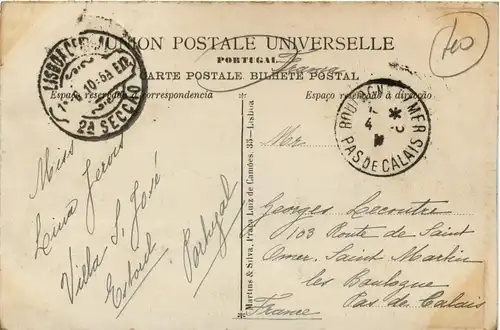 UNION POSTALE UNIVERSELLE
PORTUGAL
CARTE POSTALE BILHETE POSTAL
Espaço reservado á correspondencia
Espaço reservado á direcção
LISBOA CENTRAL
2A SECÇÃO
BOULOGNE S MER
4
PAS DE CALAIS
Miss
Lina
Villa S. José
Estoril
Portugal
Martins & Silva, Praça Luiz de Camões, 35 - Lisboa
France
Mr
Georges Lecoutre
103 Route de Saint
Omer. Saint Martin
les Boulogne
Pas de Calais
France